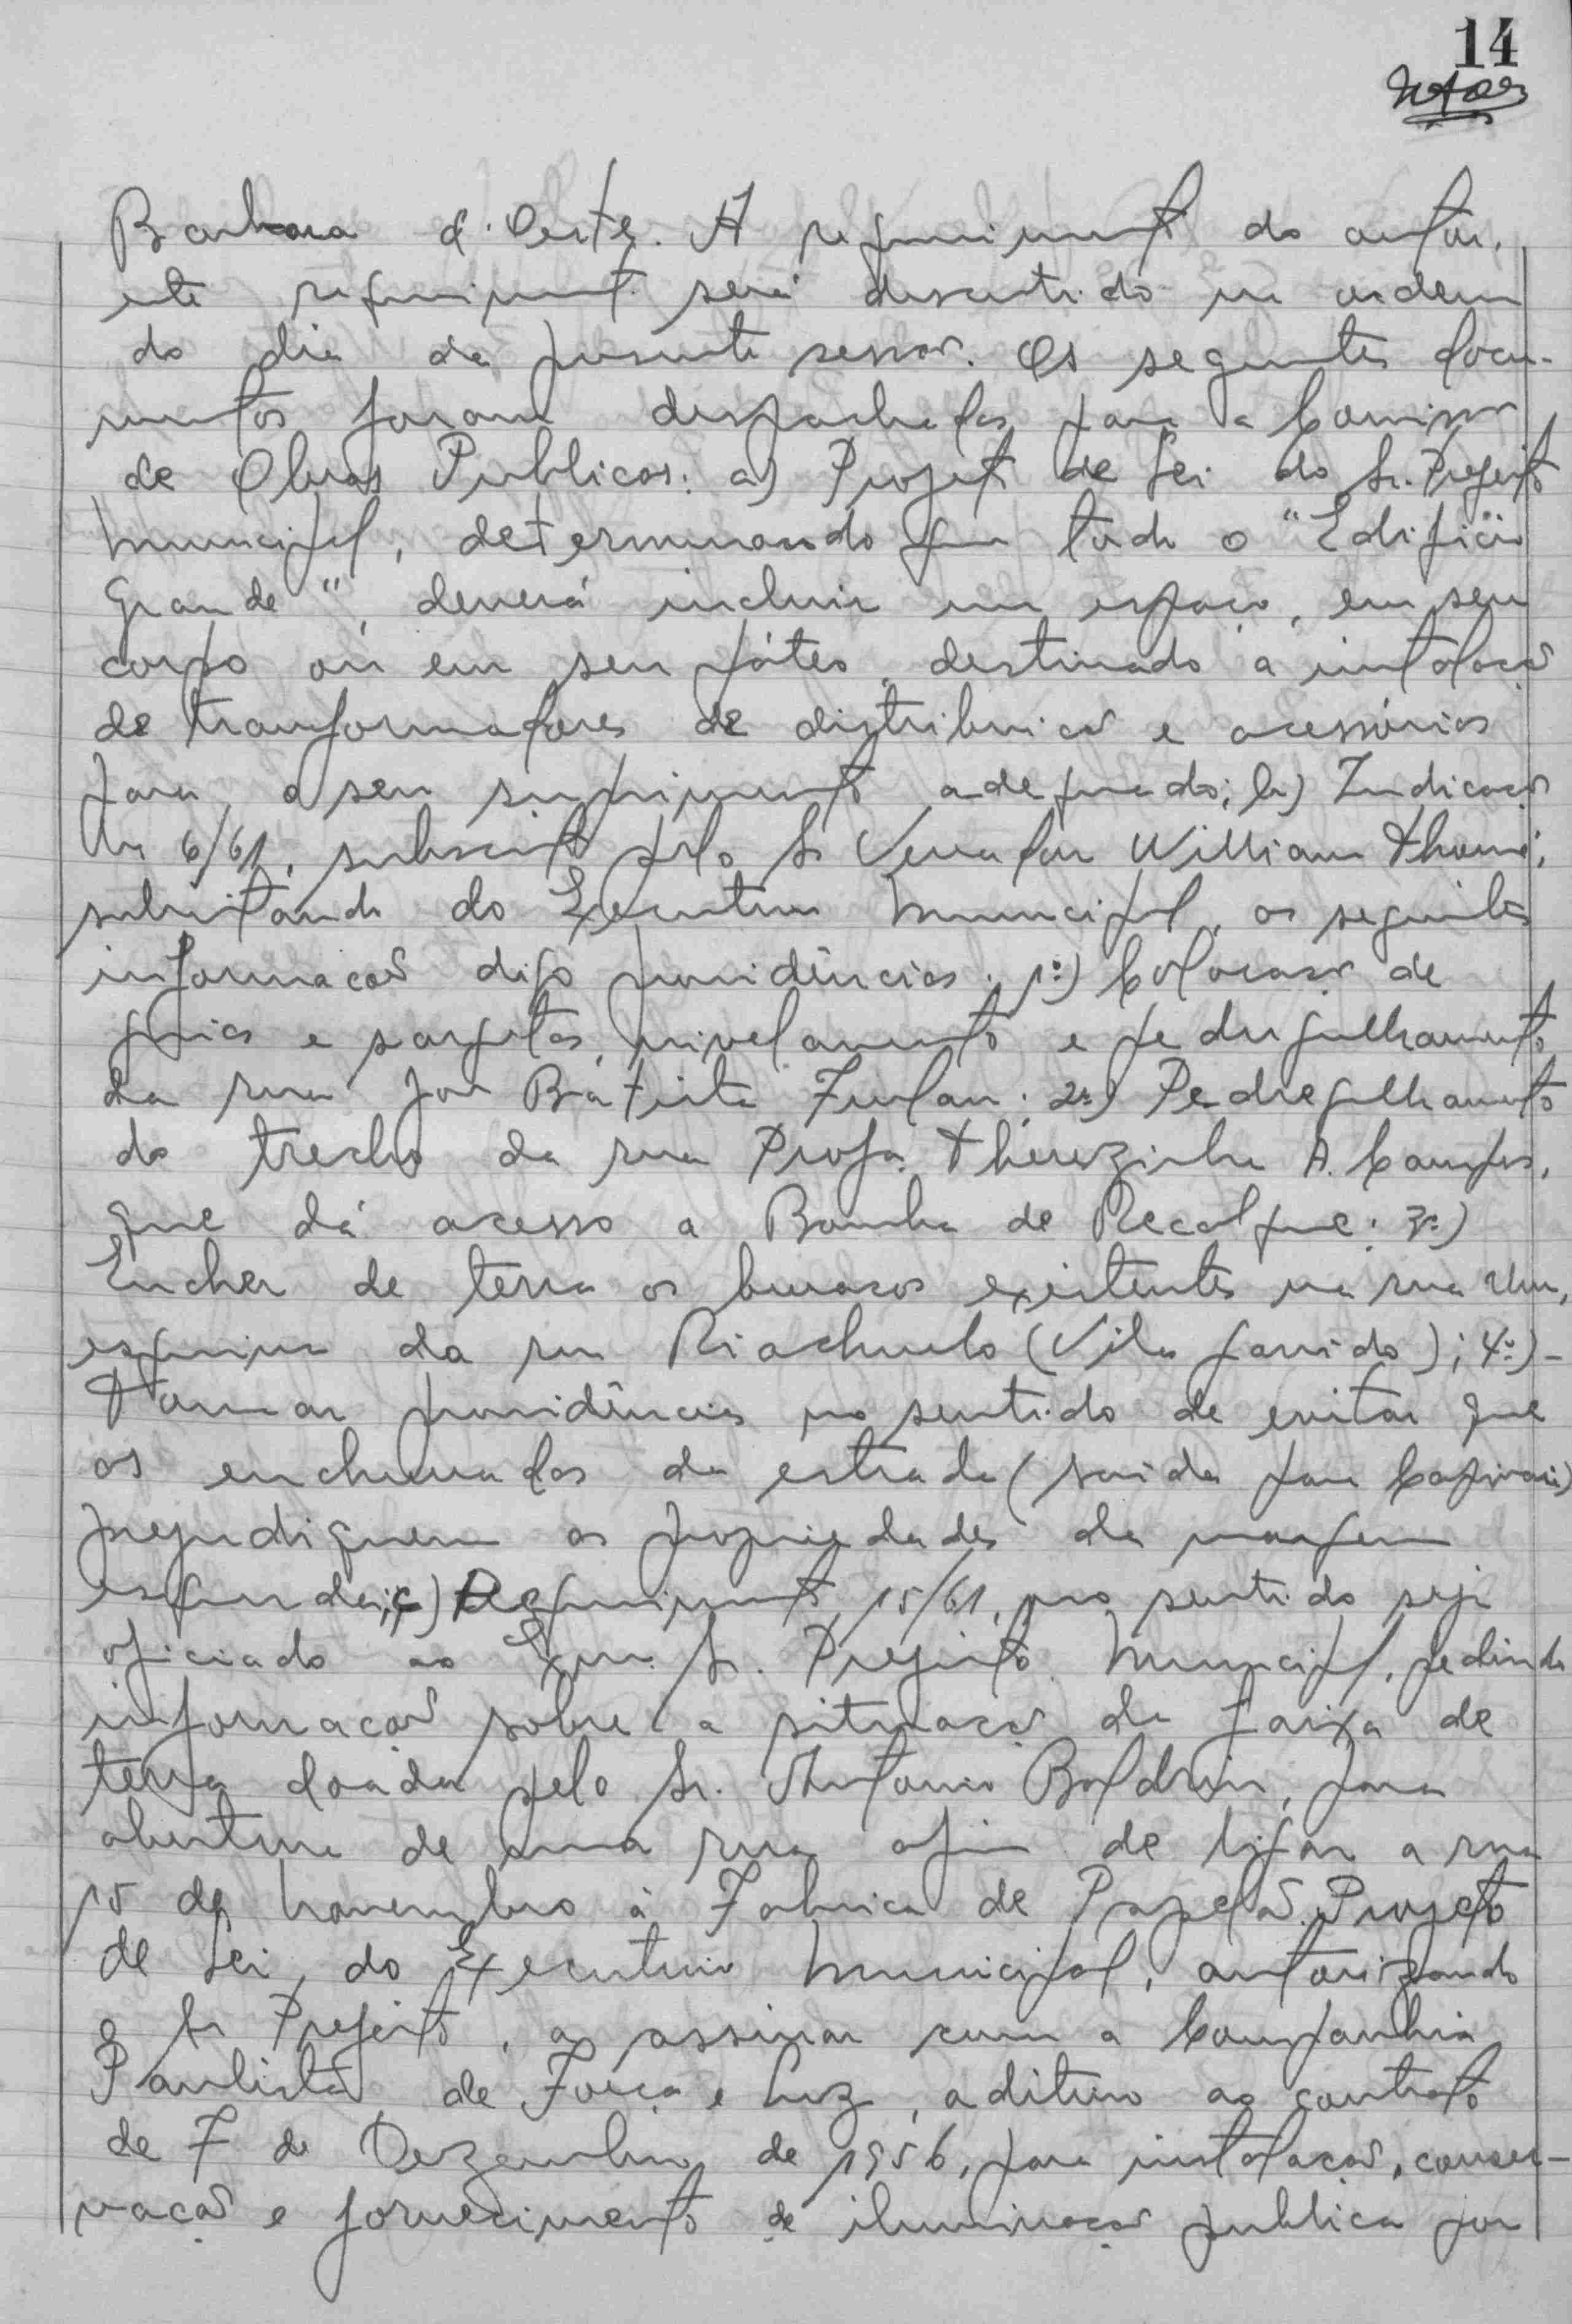 14
Barbara d'Oeste. A requerimento do autor,
este requerimento será discutido na ordem
do dia da presente sessão. Os seguintes docu-
mentos foram despachados para a Comissão
de Obras Publicas: a) Projeto de Lei do Sr. Prefeito
Municipal, determinando que todo o "Edificio
Grande", deverá incluir um espaço, em seu
corpo ou em seu páteo, destinado a instalação
de transformadores de distribuição e acessórios
para o seu suprimento adequado; b) Indicação
Nº 6/61, subscrito pelo Sr Vereador William Thomé,
solicitando do Executivo Municipal, as seguintes
informações digo providências: 1º) Colocação de
guias e sargetas, nivelamento e pedregulhamento
da rua João Batista Furlan; 2º) Pedregulhamento
do trecho da rua Profa. Therezinha A. Campos,
que dá acesso a Bomba de Recalque; 3º)
Encher de terra os buracos existentes na rua Um,
esquina da rua Riachuelo (Vila Garrido); 4º)-
Tomar providências no sentido de evitar que
as enchurradas da estrada (saida para Capivari)
prejudiquem as propriedades da margem
esquerda; c) Requerimento 15/61, no sentido seja
oficiado ao Exmo. Sr. Prefeito Municipal, pedindo
informação sobre a situação da faixa de
terra doada pelo Sr. Antonio Boldrin, para
abertura de uma rua afim de ligar a rua
15 de Novembro à Fabrica de Papelão. Projeto
de Lei, do Executivo Municipal, autorizando
o Sr Prefeito, a assinar com a Companhia
Paulista de Força e Luz, aditivo ao contrato
de 7 de Dezembro de 1956, para instalação, conser-
vação e fornecimento de iluminação publica por